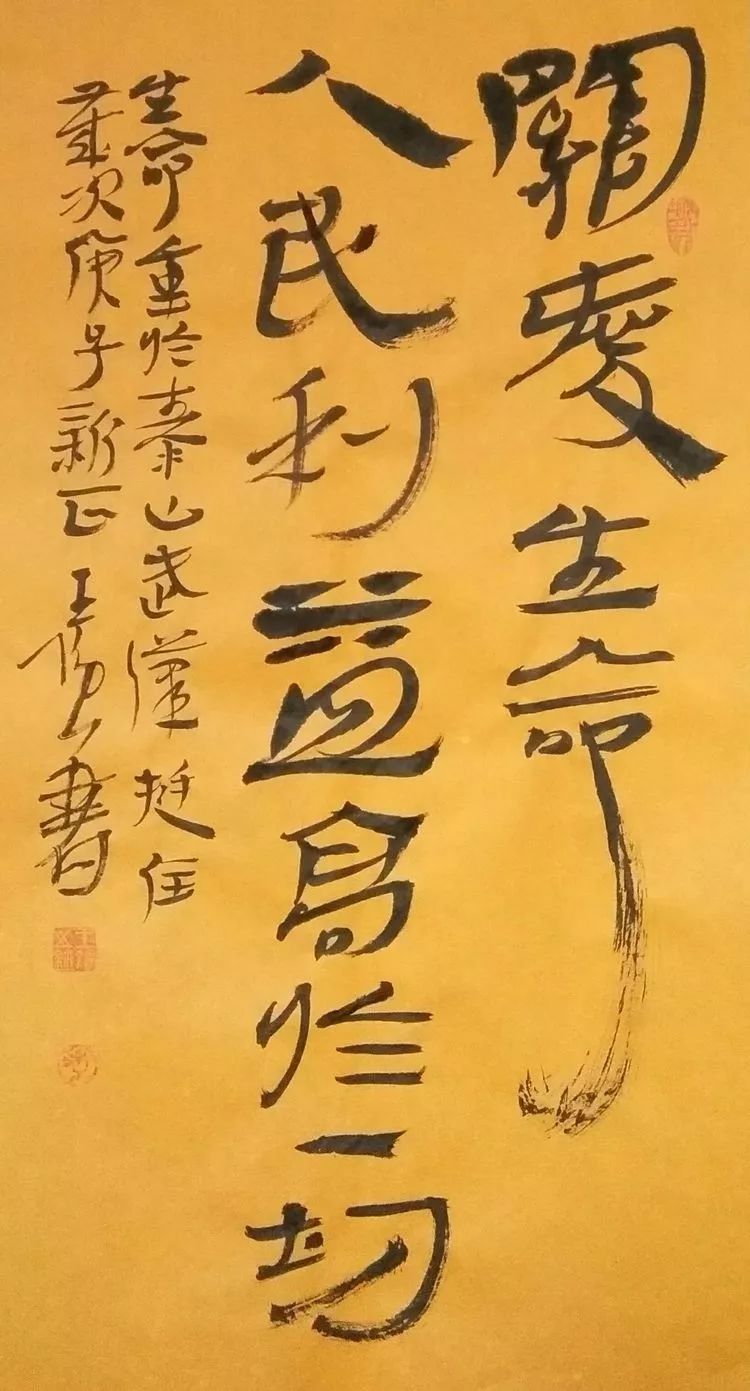 關愛生命
人民利益高於一切
生命重於泰山武漢挺住
歲次庚子新正王書